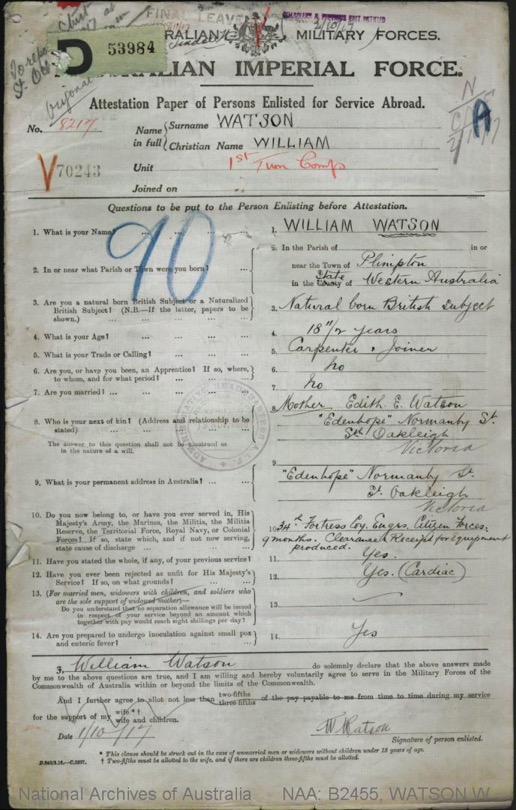 FINAL LEAVE
D 53984
2/10/17
AUSTRALIAN MILITARY FORCES.
AUSTRALIAN IMPERIAL FORCE.
Attestation Paper of Persons Enlisted for Service Abroad.
No. 8217
Name in full } Surname WATSON
Christian Name WILLIAM
V70243
Unit 1st Tun Comps
Joined on
Questions to be put to the Person Enlisting before Attestation.
90
1. What is your Name? ... ... ... 1. WILLIAM WATSON
2. In or near what Parish or Town were you born? ... 2. In the Parish of in or
near the Town of Plimpton
in the County State of Western Australia
3. Are you a natural born British Subject or a Naturalized
British Subject? (N.B.—If the latter, papers to be
shown.) ... 3. Natural born British Subject
4. What is your Age? ... ... ... 4. 18 11/12 years
5. What is your Trade or Calling? ... ... ... 5. Carpenter & Joiner
6. Are you, or have you been, an Apprentice? If so, where,
to whom, and for what period? ... 6. No
7. Are you married? ... ... ... 7. No
8. Who is your next of kin? (Address and relationship to be
stated) ... 8. Mother Edith E. Watson
"Edenhope" Normanby St.
Sth Oakleigh
Victoria
The answer to this question shall not be construed as
in the nature of a will.
9. What is your permanent address in Australia? ... 9. "Edenhope" Normanby St.
St. Oakleigh
Victoria
10. Do you now belong to, or have you ever served in, His
Majesty's Army, the Marines, the Militia, the Militia
Reserve, the Territorial Force, Royal Navy, or Colonial
Forces? If so, state which, and if not now serving,
state cause of discharge ... 10. 34th Fortress Coy. Engrs. Citizen Forces.
9 months. Clearance & Receipt for equipment
produced.
11. Have you stated the whole, if any, of your previous service? 11. Yes.
12. Have you ever been rejected as unfit for His Majesty's
Service? If so, on what grounds? ... 12. Yes. (Cardiac)
13. (For married men, widowers with children, and soldiers who
are the sole support of widowed mother)—
Do you understand that no separation allowance will be issued
in respect of your service beyond an amount which
together with pay would reach eight shillings per day? 13.
14. Are you prepared to undergo inoculation against small pox
and enteric fever? ... 14. Yes
I, William Watson do solemnly declare that the above answers made
by me to the above questions are true, and I am willing and hereby voluntarily agree to serve in the Military Forces of the
Commonwealth of Australia within or beyond the limits of the Commonwealth.
And I further agree to allot not less than two-fifths three-fifths of the pay payable to me from time to time during my service
for the support of my wife*† wife and children.
Date 1/10/17
W. Watson
Signature of person enlisted.
* This clause should be struck out in the case of unmarried men or widowers without children under 18 years of age.
† Two-fifths must be allotted to the wife, and if there are children three-fifths must be allotted.
National Archives of Australia NAA: B2455, WATSON W